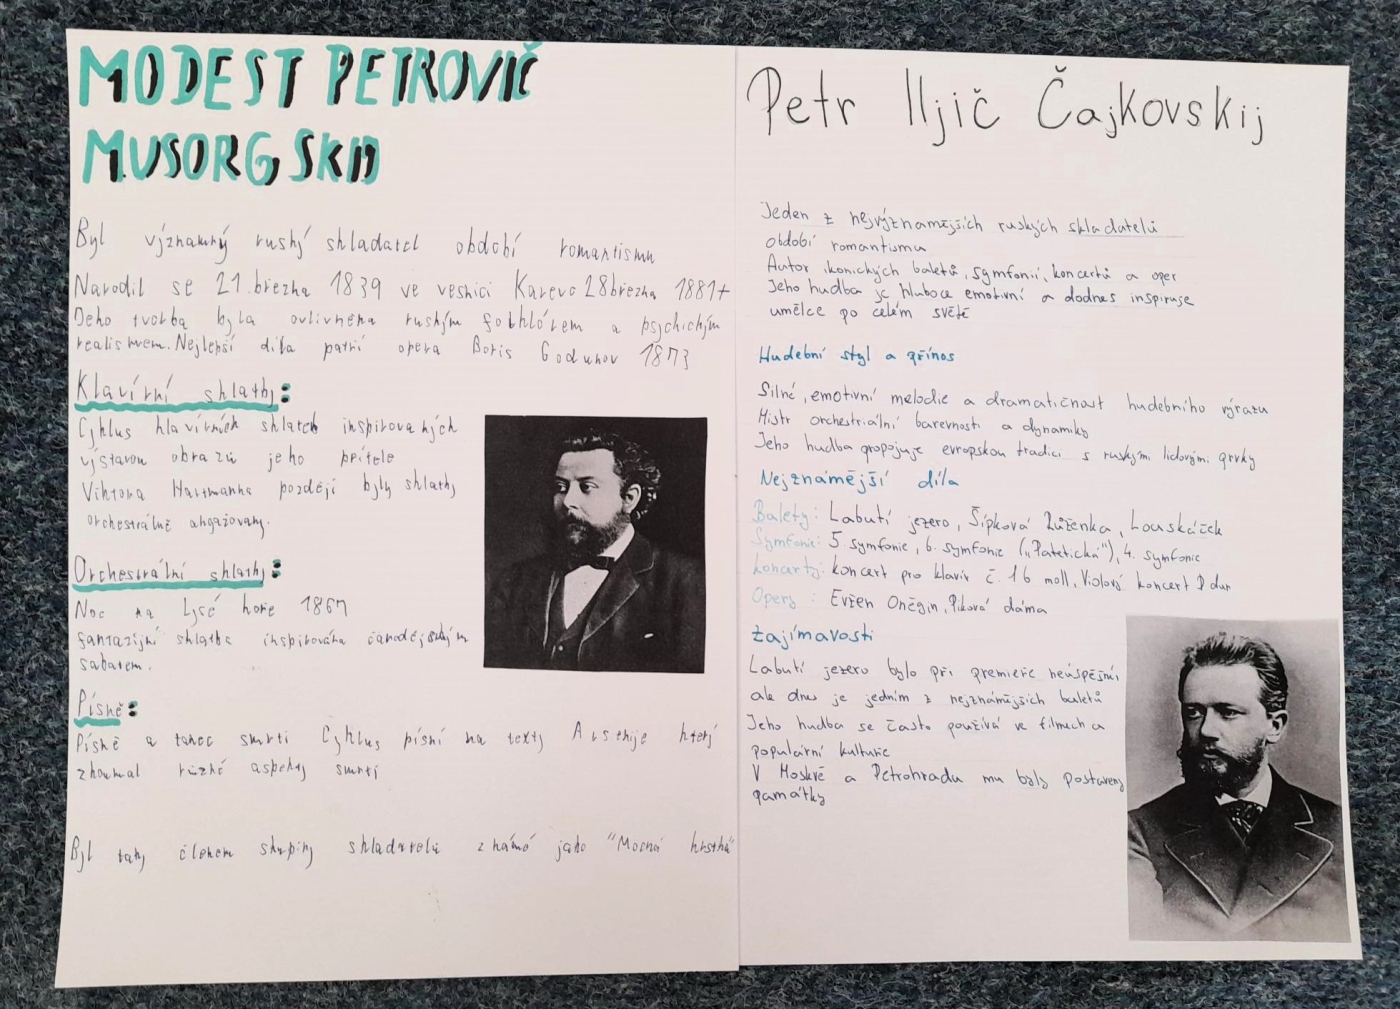 MODEST PETROVIČ
MUSORGSKIJ
Byl významný ruský skladatel období romantismu
Narodil se 21.března 1839 ve vesnici Karevo 28března 1881+
Jeho tvorba byla ovlivněna ruským folklórem a psychickým
realismem. Nejlepší díla patří opera Boris Godunov 1873
Klavírní skladby:
Cyklus klavírních skladeb inspirovaných
výstavou obrazů jeho přítele
Viktora Hartmanna později byly skladby
orchestrálně
Orchestrální skladby:
Noc na Lysé hoře 1867
fantazijní skladba inspirována čarodějským
sabatem.
Písně:
Písně a tanec smrti Cyklus písní na texty Arsenije který
zkoumal různé aspekty smrti
Byl taky členem skupiny skladatelů známé jako "Mocná hrstka"
Petr Iljič Čajkovskij
Jeden z nejvýznamějších ruských skladatelů
období romantismu
Autor ikonických baletů, symfonií, koncertů a oper
Jeho hudba je hluboce emotivní a dodnes inspiruje
umělce po celém světě
Hudební styl a přínos
Silné, emotivní melodie a dramatičnost hudebního výrazu
Mistr orchestriální barevnosti a dynamiky
Jeho hudba propojuje evropskou tradici s ruskými lidovými prvky
Nejznámější díla
Balety: Labutí jezero, Šípková Růženka, Louskáček
Symfonie: 5 symfonie, 6. symfonie („Patetická"), 4. symfonie
koncerty: koncert pro klavír č. 1 b moll, Violový koncert D dur
Opery : Evžen Oněgin, Piková dáma
Zajímavosti
Labutí jezero bylo při premieře neúspěšní
ale dnes je jedním z nejznámějších baletů
Jeho hudba se často používá ve filmech a
populární kultuře
V Moskvě a Petrohradu mu byly postaveny
památky